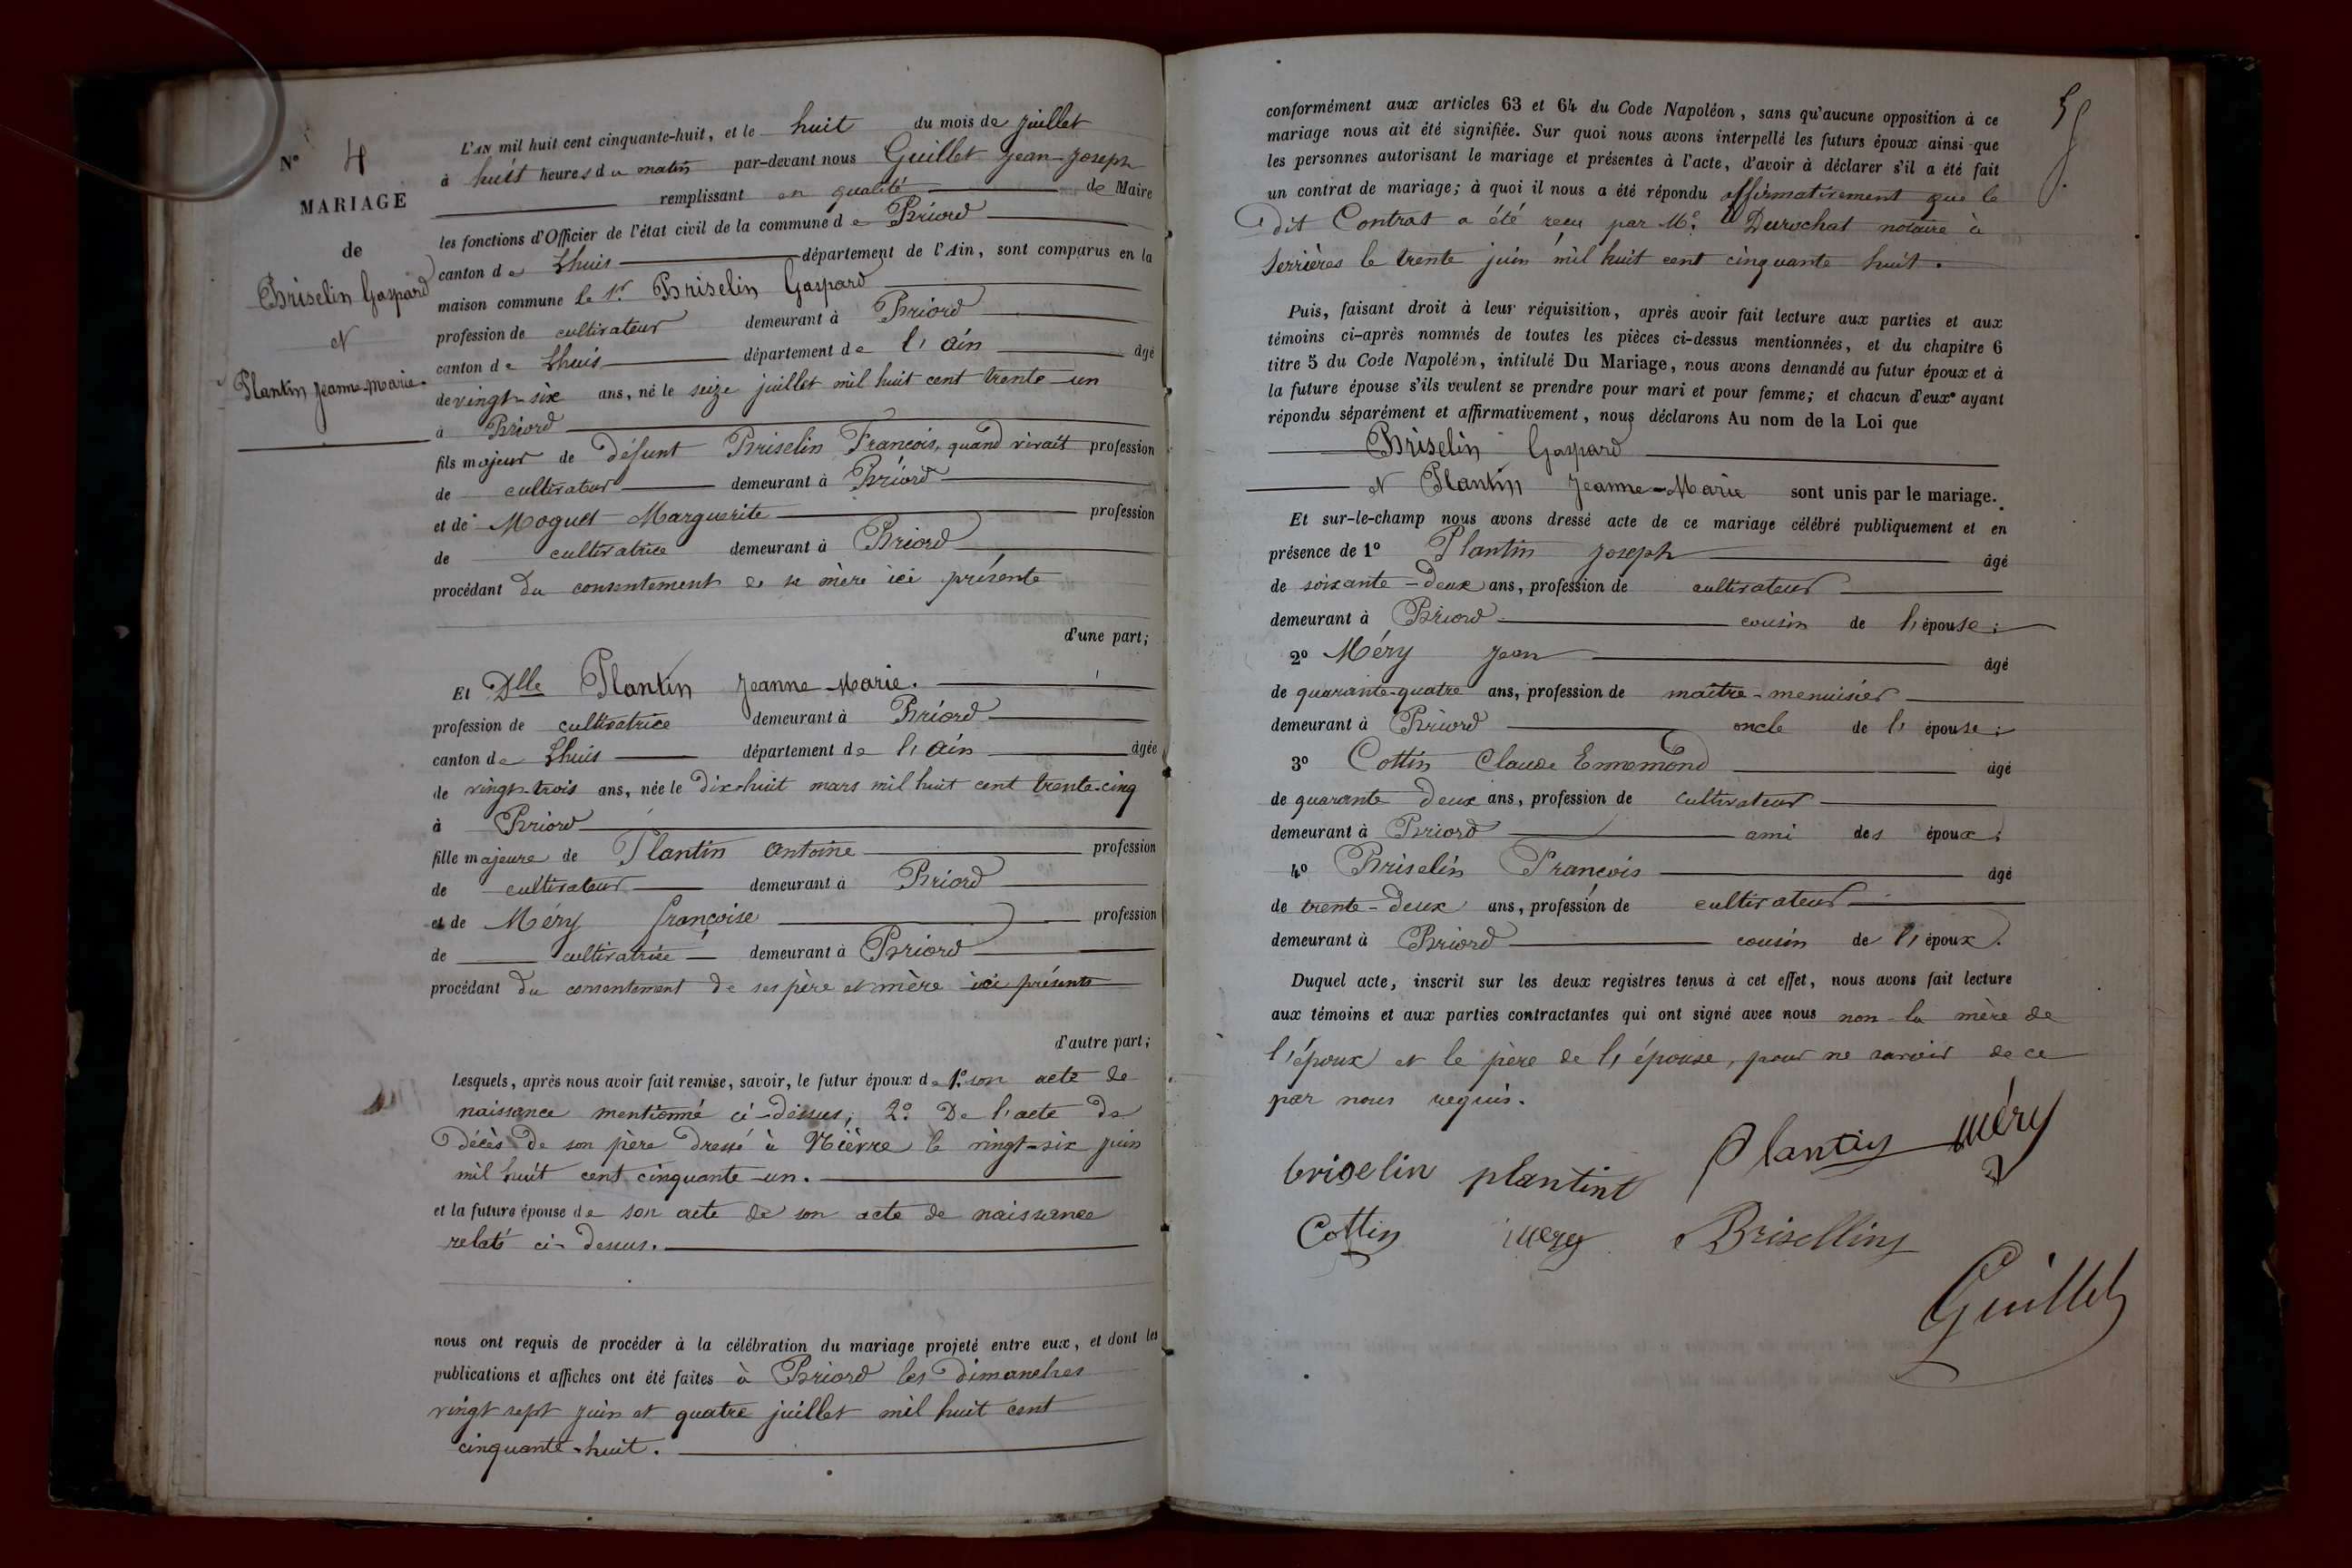 N° 4
MARIAGE
de
Briselin Gaspard
et
Plantin Jeanne-Marie.
L'AN mil huit cent cinquante-huit, et le huit du mois de juillet
à huit heures du matin par-devant nous Guillet Jean-Joseph
remplissant en qualité de Maire
les fonctions d'Officier de l'état civil de la commune de Briord
canton de Lhuis département de l'Ain, sont comparus en la
maison commune le Sr Briselin Gaspard
profession de cultivateur demeurant à Briord
canton de Lhuis département de l'Ain âgé
de vingt-six ans, né le seize juillet mil huit cent trente-un
à Briord
fils majeur de défunt Briselin François, quand vivait profession
de cultivateur demeurant à Briord
et de Moguet Marguerite profession
de cultivatrice demeurant à Briord
procédant du consentement de sa mère ici présente
d'une part;
Et Dlle Plantin Jeanne-Marie.
profession de cultivatrice demeurant à Briord
canton de Lhuis département de l'Ain âgée
de vingt-trois ans, née le dix-huit mars mil huit cent trente-cinq
à Briord
fille majeure de Plantin Antoine profession
de cultivateur demeurant à Briord
et de Méry françoise profession
de cultivatrice demeurant à Briord
procédant du consentement de ses père et mère ici présents
d'autre part;
Lesquels, après nous avoir fait remise, savoir, le futur époux de 1° son acte de
naissance mentionné ci-dessus; 2° De l'acte de
décès de son père dressé à Nièvre le vingt-six juin
mil huit cent cinquante-un.
et la future épouse de son acte de son acte de naissance
relaté ci-dessus.
nous ont requis de procéder à la célébration du mariage projeté entre eux, et dont les
publications et affiches ont été faites à Briord les dimanches
vingt sept juin et quatre juillet mil huit cent
cinquante-huit.
conformément aux articles 63 et 64 du Code Napoléon, sans qu'aucune opposition à ce
mariage nous ait été signifiée. Sur quoi nous avons interpellé les futurs époux ainsi que
les personnes autorisant le mariage et présentes à l'acte, d'avoir à déclarer s'il a été fait
un contrat de mariage; à quoi il nous a été répondu affirmativement que le
dit Contrat a été reçu par Me. Durochat notaire à
Serrières le trente juin mil huit cent cinquante huit.
Puis, faisant droit à leur réquisition, après avoir fait lecture aux parties et aux
témoins ci-après nommés de toutes les pièces ci-dessus mentionnées, et du chapitre 6
titre 5 du Code Napoléon, intitulé Du Mariage, nous avons demandé au futur époux et à
la future épouse s'ils veulent se prendre pour mari et pour femme; et chacun d'eux ayant
répondu séparément et affirmativement, nous déclarons Au nom de la Loi que
Briselin Gaspard
et Plantin Jeanne-Marie sont unis par le mariage.
Et sur-le-champ nous avons dressé acte de ce mariage célébré publiquement et en
présence de 1° Plantin Joseph âgé
de soixante-deux ans, profession de cultivateur
demeurant à Briord cousin de l'épouse;
2° Méry Jean âgé
de quarante-quatre ans, profession de maître-menuisier
demeurant à Briord oncle de l'épouse;
3° Cottin Claude Ennemond âgé
de quarante deux ans, profession de cultivateur
demeurant à Briord ami des époux;
4° Briselin François âgé
de trente-deux ans, profession de cultivateur
demeurant à Briord cousin de l'époux.
Duquel acte, inscrit sur les deux registres tenus à cet effet, nous avons fait lecture
aux témoins et aux parties contractantes qui ont signé avec nous non la mère de
l'époux et le père de l'épouse, pour ne savoir de ce
par nous requis.
briselin plantint Plantin Méry
Cottin mery Brisellin
Guillet